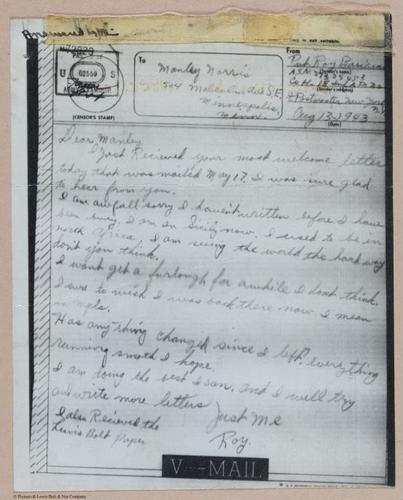 Answered
To
From
Manley Norris
Malcolm Ave S.E.
Minneapolis,
Minn
Pvt. Roy
(Sender's name)
(Sender's address)
Postmaster New York
N.Y.
Aug 13, 1943
(Date)
U S
02559
(CENSOR'S STAMP)
Dear Manley
I Just Recieved your most welcome letter
today that was mailed May 17. I was sure glad
to hear from you.
I am awfall sorry I haven't written before I have
been busy. I am in Sicily now. I used to be in
north Africa. I am seeing the world the hard way
dont you think.
I wont get a furlough for awhile I dont think.
I sure to wish I was back there now I mean
in mpls.
Has any thing changed since I left? everything
running smooth I hope.
I am doing the best I can, and I will try
and write more letters
Just Me
Roy.
I also Recieved the
Lewis Bolt Paper
V-MAIL
© Picture & Lewis Bolt & Nut Company